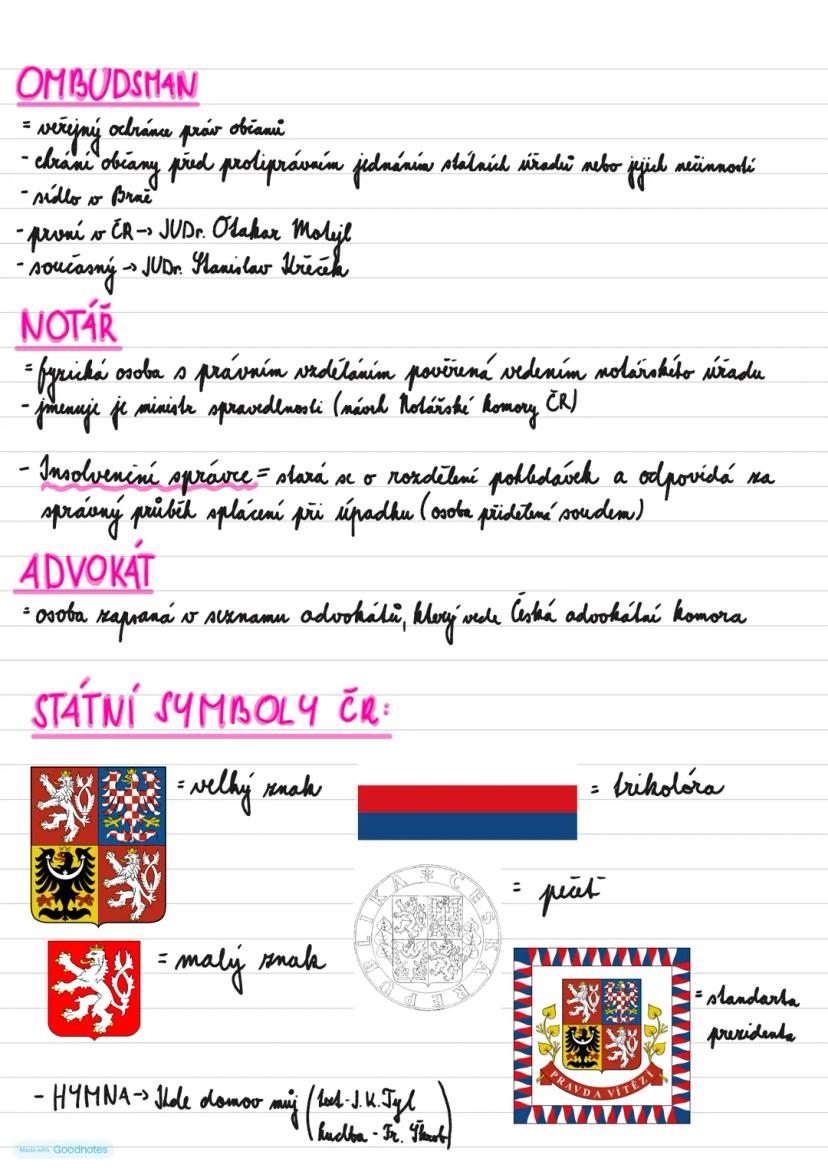 OMBUDSMAN
= veřejný ochránce práv občanů
- chrání občany před protiprávním jednáním státních úřadů nebo jejich nečinností
- sídlo v Brně
- první v ČR → JUDr. Otakar Motejl
- současný → JUDr. Stanislav Křeček
NOTÁŘ
= fyzická osoba s právním vzděláním pověřená vedením notářského úřadu
- jmenuje je ministr spravedlnosti (návrh Notářské komory ČR)
- Insolvenční správce = stará se o rozdělení pohledávek a odpovídá za
správný průběh splácení při úpadku (osoba přidělená soudem)
ADVOKÁT
= osoba zapsaná v seznamu advokátů, který vede Česká advokátní komora
STÁTNÍ SYMBOLY ČR:
= velký znak
= trikolóra
ČESKÁ REPUBLIKA
= pečeť
= malý znak
PRAVDA VÍTĚZÍ
= standarta
prezidenta
- HYMNA → Kde domov můj (text - J.K. Tyl
hudba - Fr. Škroub)
Made with Goodnotes